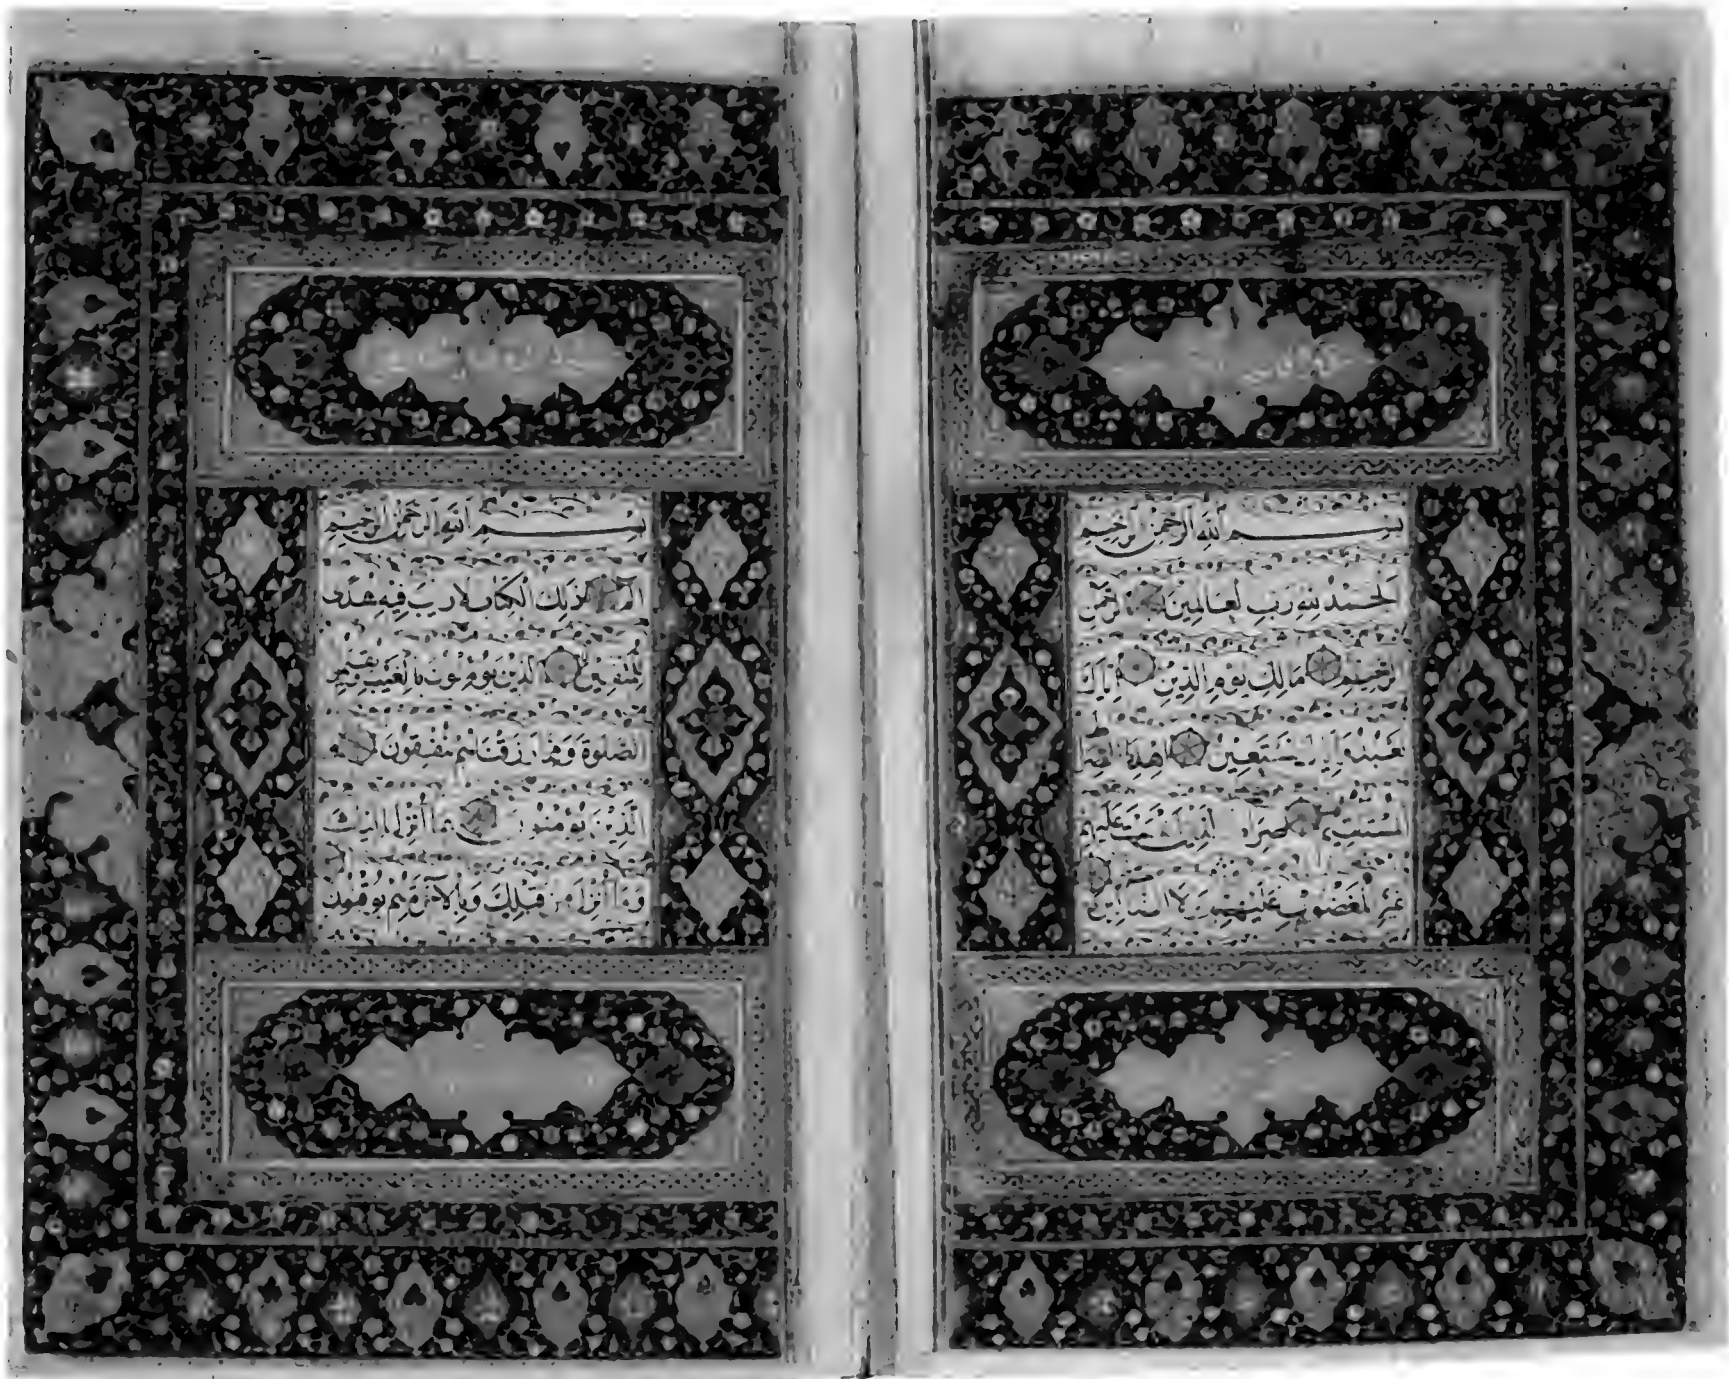 بِسْمِ اللهِ الرَّحْمٰنِ الرَّحِيمِ
اَلْحَمْدُ لِلّٰهِ رَبِّ الْعَالَمِينَ الرَّحْمٰنِ
الرَّحِيمِ مَالِكِ يَوْمِ الدِّينِ اِيَّاكَ
نَعْبُدُ وَاِيَّاكَ نَسْتَعِينُ اِهْدِنَا الصِّرَاطَ
الْمُسْتَقِيمَ صِرَاطَ الَّذِينَ اَنْعَمْتَ عَلَيْهِمْ
غَيْرِ الْمَغْضُوبِ عَلَيْهِمْ وَلَا الضَّالِّينَ
بِسْمِ اللهِ الرَّحْمٰنِ الرَّحِيمِ
الٓمٓ ذٰلِكَ الْكِتَابُ لَا رَيْبَ فِيهِ هُدًى
لِلْمُتَّقِينَ الَّذِينَ يُؤْمِنُونَ بِالْغَيْبِ وَيُقِيمُونَ
الصَّلٰوةَ وَمِمَّا رَزَقْنَاهُمْ يُنْفِقُونَ وَ
الَّذِينَ يُؤْمِنُونَ بِمَا اُنْزِلَ اِلَيْكَ
وَمَا اُنْزِلَ مِنْ قَبْلِكَ وَبِالْاٰخِرَةِ هُمْ يُوقِنُونَ